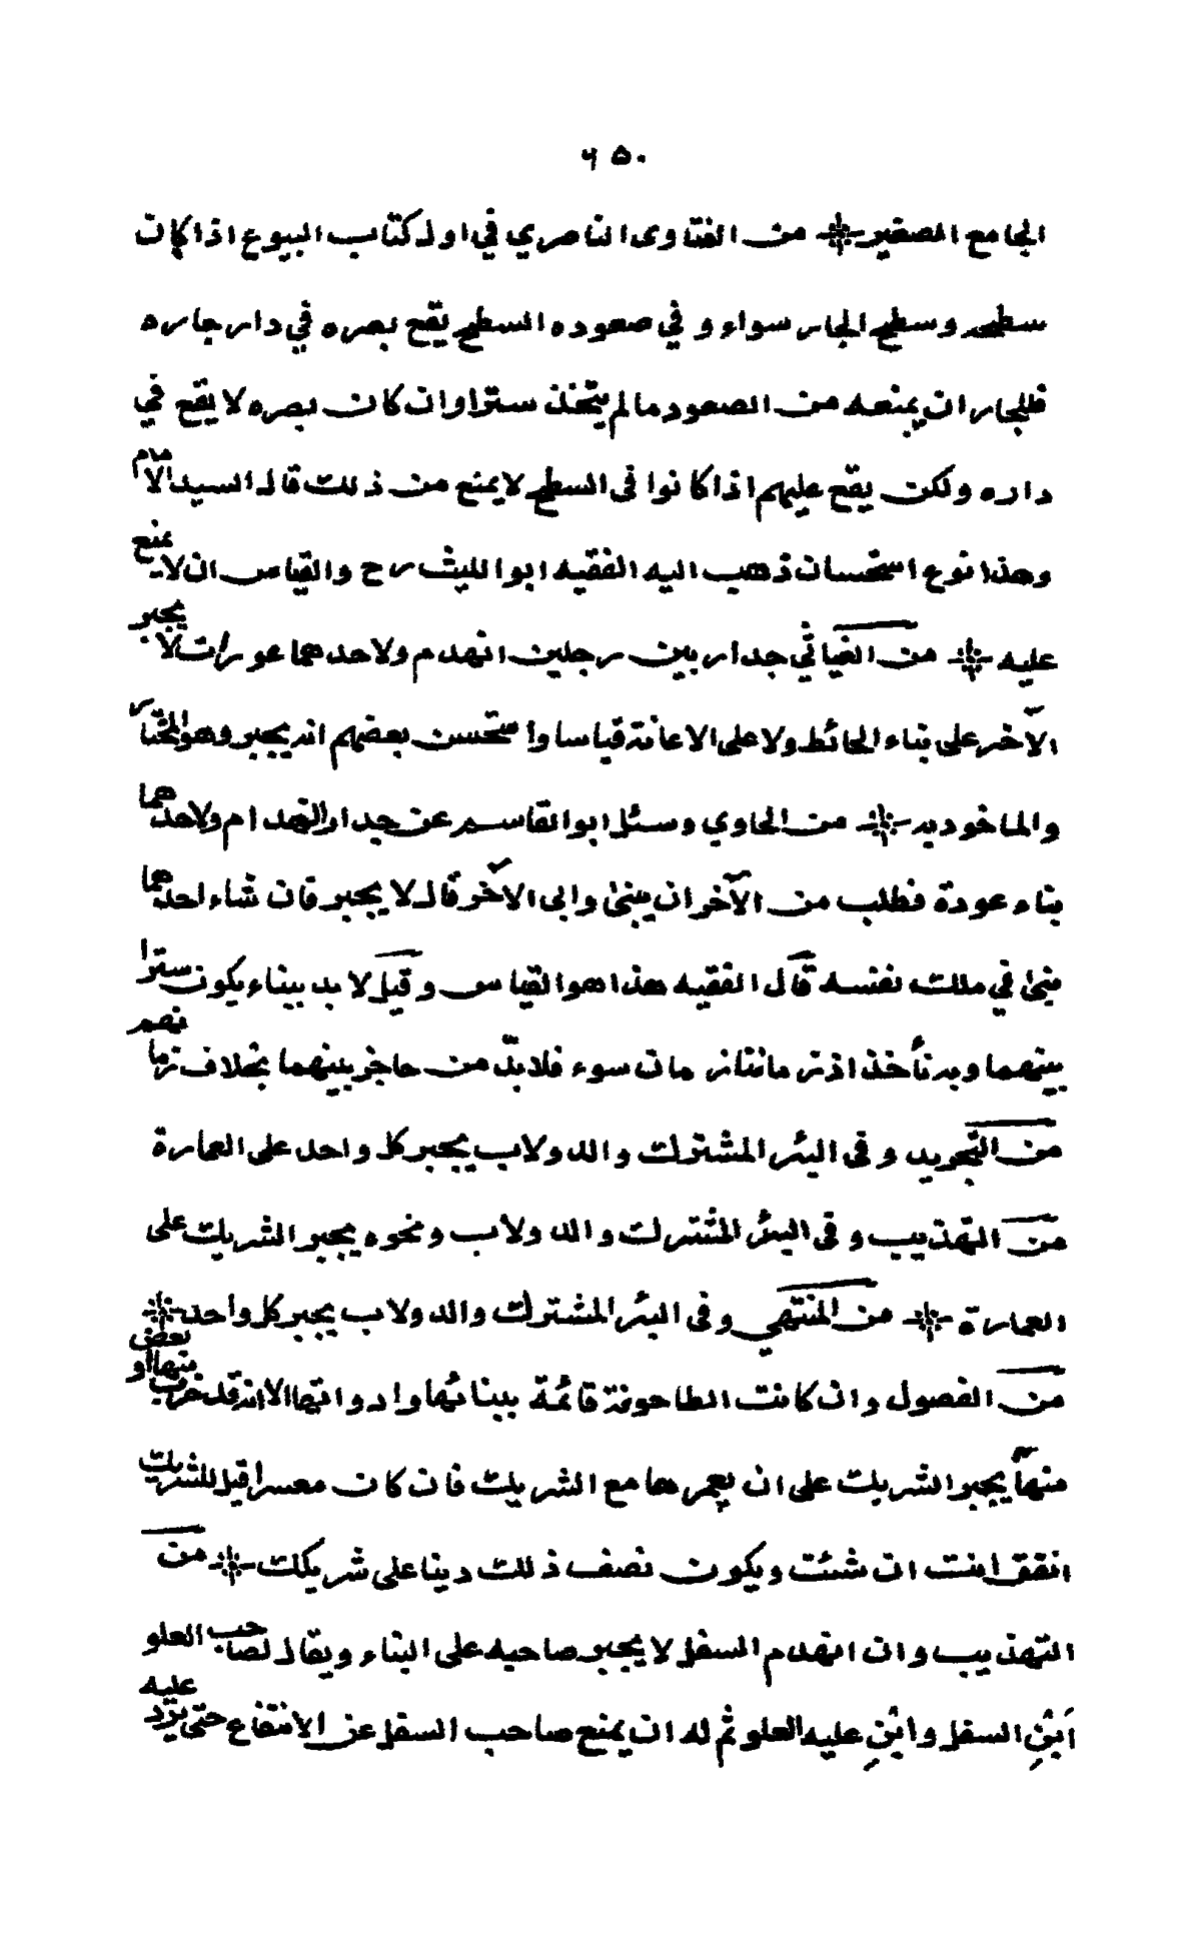 ٦٥٠
الجامع الصغير ❊ من الفتاوى الناصري في اول كتاب البيوع اذا كان
سطحه وسطح الجار سواء و في صعوده السطح يقع بصره في دار جاره
فللجار ان يمنعه من الصعود ما لم يتخذ سترا وان كان بصره لا يقع في
داره ولكن يقع عليهم اذا كانوا فى السطح لا يمنع من ذلك قال السيد الامام
وهذا نوع استحسان ذهب اليه الفقيه ابو الليث رح والقياس ان لا يمنع
عليه ❊ من الغياثي جدار بين رجلين انهدم ولاحدهما عورات لا يجبر
الآخر على بناء الحائط ولا على الاعانة قياسا واستحسن بعضهم انه يجبر وهو المختار
والماخوذ به ❊ من الحاوي وسئل ابو القاسم عن جدار انهدم ولاحدهما
بناء عورة فطلب من الآخر ان يبنى وابى الآخر قال لا يجبر فان شاء احدهما
فبنى في ملك نفسه قال الفقيه هذا هو القياس وقيل لا بد ببناء يكون سترا
بينهما وبه نأخذ اذ زماننا زمان سوء فلا بدّ من حاجز بينهما بخلاف زمانهم
من التجريد و فى البئر المشترك والدولاب يجبر كل واحد على العمارة
من التهذيب و فى البئر المشترك والدولاب ونحوه يجبر الشريك على
العمارة ❊ من المنتهى و فى البئر المشترك والدولاب يجبر كل واحد ❊
من الفصول وان كانت الطاحونة قائمة ببنائها وادواتها الا انه قد خرب بعض منها او
منها يجبر الشريك على ان يعمرها مع الشريك فان كان معسرا قيل للشريك
انفق انت ان شئت ويكون نصف ذلك دينا على شريكك ❊ من
التهذيب وان انهدم السفل لا يجبر صاحبه على البناء ويقال لصاحب العلو
اَبْنِ السفل وابْنِ عليه العلو ثم له ان يمنع صاحب السفل عن الانتفاع حتى يردّ عليه